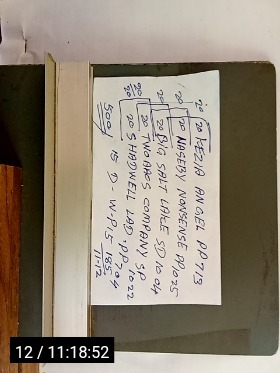 20 KEZIA ANGEL PP 713
20 NASEBY NONSENSE PP 1025
20 BIG SALT LAKE SD 1004
20 TWO AROS COMPANY SP 1022
20 SHADWELL LAD PP 704
500/
15 D-W-P15 185
11-12
12 / 11:18:52